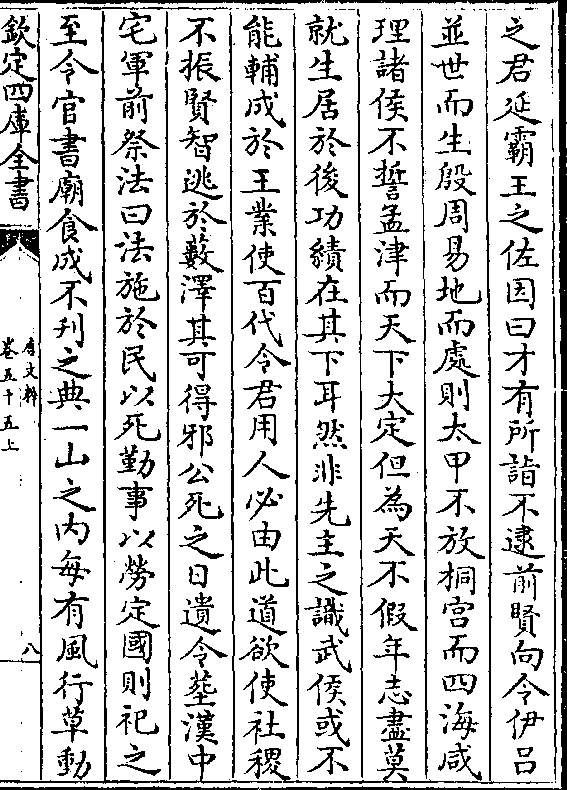 之君延霸王之佐因曰才有所詣不逮前賢向令伊吕
並世而生殷周易地而處則太甲不放桐宫而四海咸
理諸侯不誓孟津而天下大定但為天不假年志盡莫
就生居於後功績在其下耳然非先主之識武侯或不
能輔成於王業使百代令君用人必由此道欲使社稷
不振賢智逃於藪澤其可得邪公死之日遺令塟漢中
宅軍前祭法曰法施於民以死勤事以勞定國則祀之
至今官書廟食成不刋之典一山之内每有風行草動
欽定四庫全書
唐文粹
卷五十五上
八